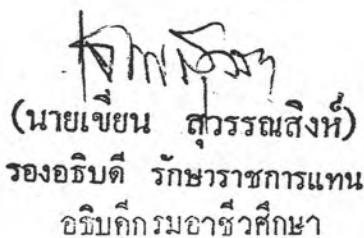 (นายเขียน สุวรรณสิงห์)
รองอธิบดี รักษาราชการแทน
อธิบดีกรมอาชีวศึกษา